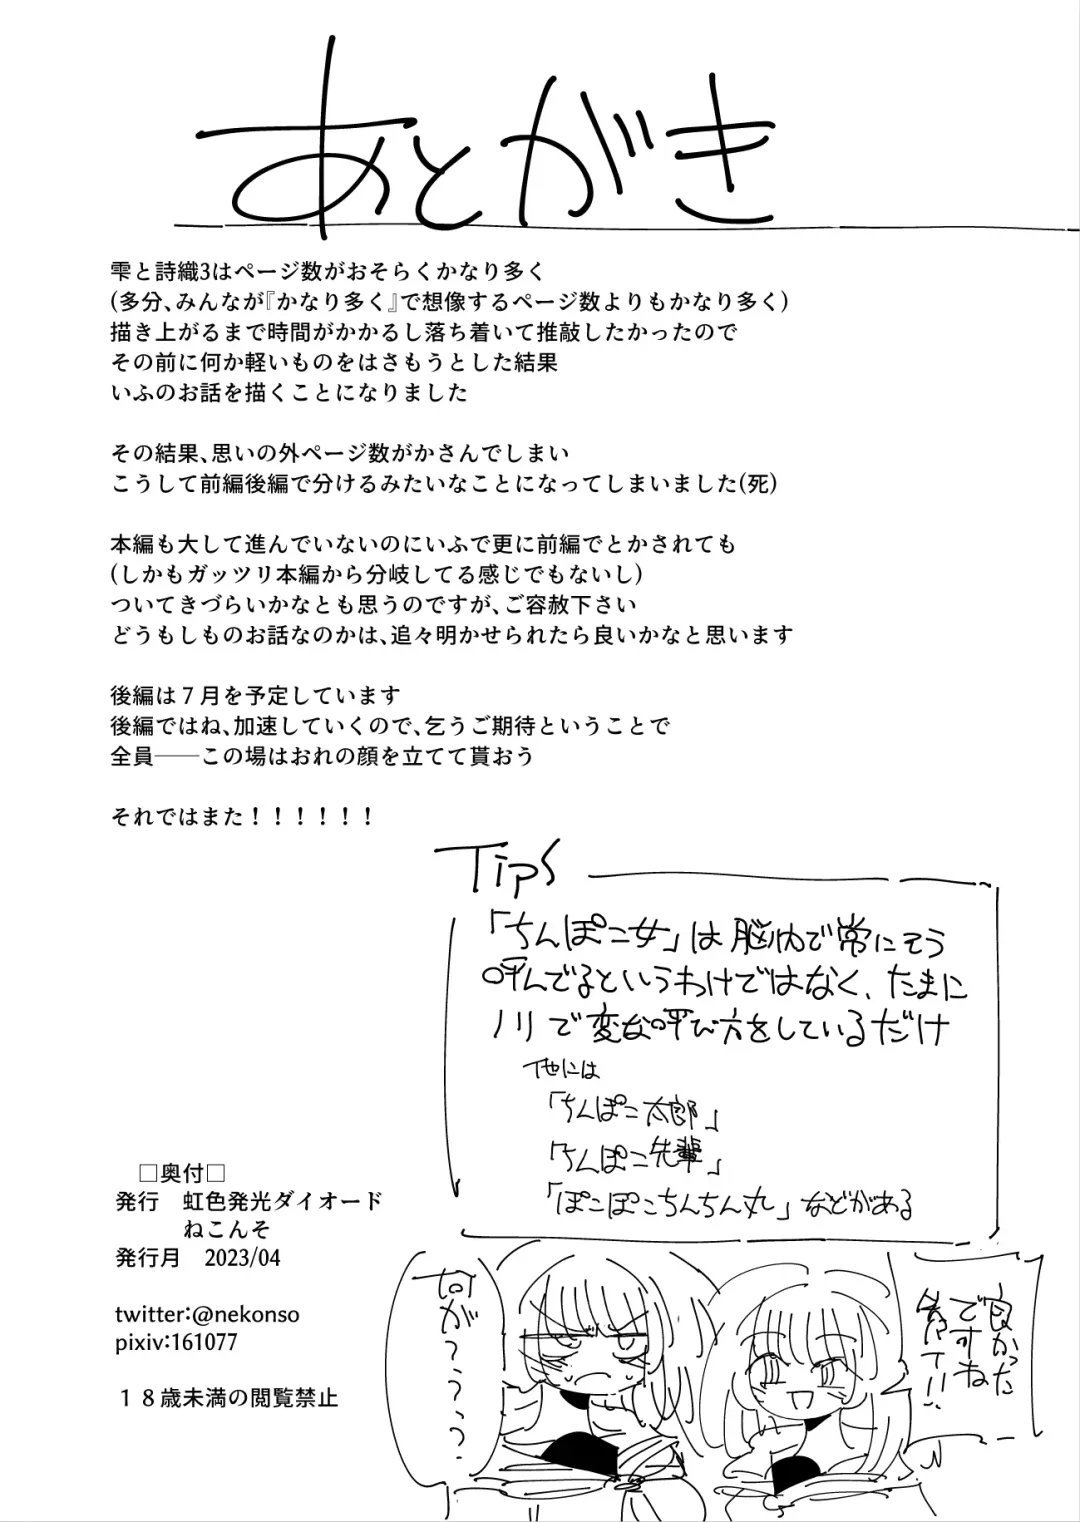 あとがき
雫と詩織3はページ数がおそらくかなり多く
(多分、みんなが『かなり多く』で想像するページ数よりもかなり多く)
描き上がるまで時間がかかるし落ち着いて推敲したかったので
その前に何か軽いものをはさもうとした結果
いふのお話を描くことになりました
その結果、思いの外ページ数がかさんでしまい
こうして前編後編で分けるみたいなことになってしまいました(死)
本編も大して進んでいないのにいふで更に前編でとかされても
(しかもガッツリ本編から分岐してる感じでもないし)
ついてきづらいかなとも思うのですが、ご容赦下さい
どうもしものお話なのかは、追々明かせられたら良いかなと思います
後編は７月を予定しています
後編ではね、加速していくので、乞うご期待ということで
全員──この場はおれの顔を立てて貰おう
それではまた！！！！！！
Tips
「ちんぽこ女」は脳内で常にそう
呼んでるというわけではなく、たまに
ノリで変な呼び方をしているだけ
他には
「ちんぽこ太郎」
「ちんぽこ先輩」
「ぽこぽこちんちん丸」などがある
良かった
ですね
先パイ!!
何が？？？？
□奥付□
発行　虹色発光ダイオード
ねこんそ
発行月　2023/04
twitter:@nekonso
pixiv:161077
１８歳未満の閲覧禁止